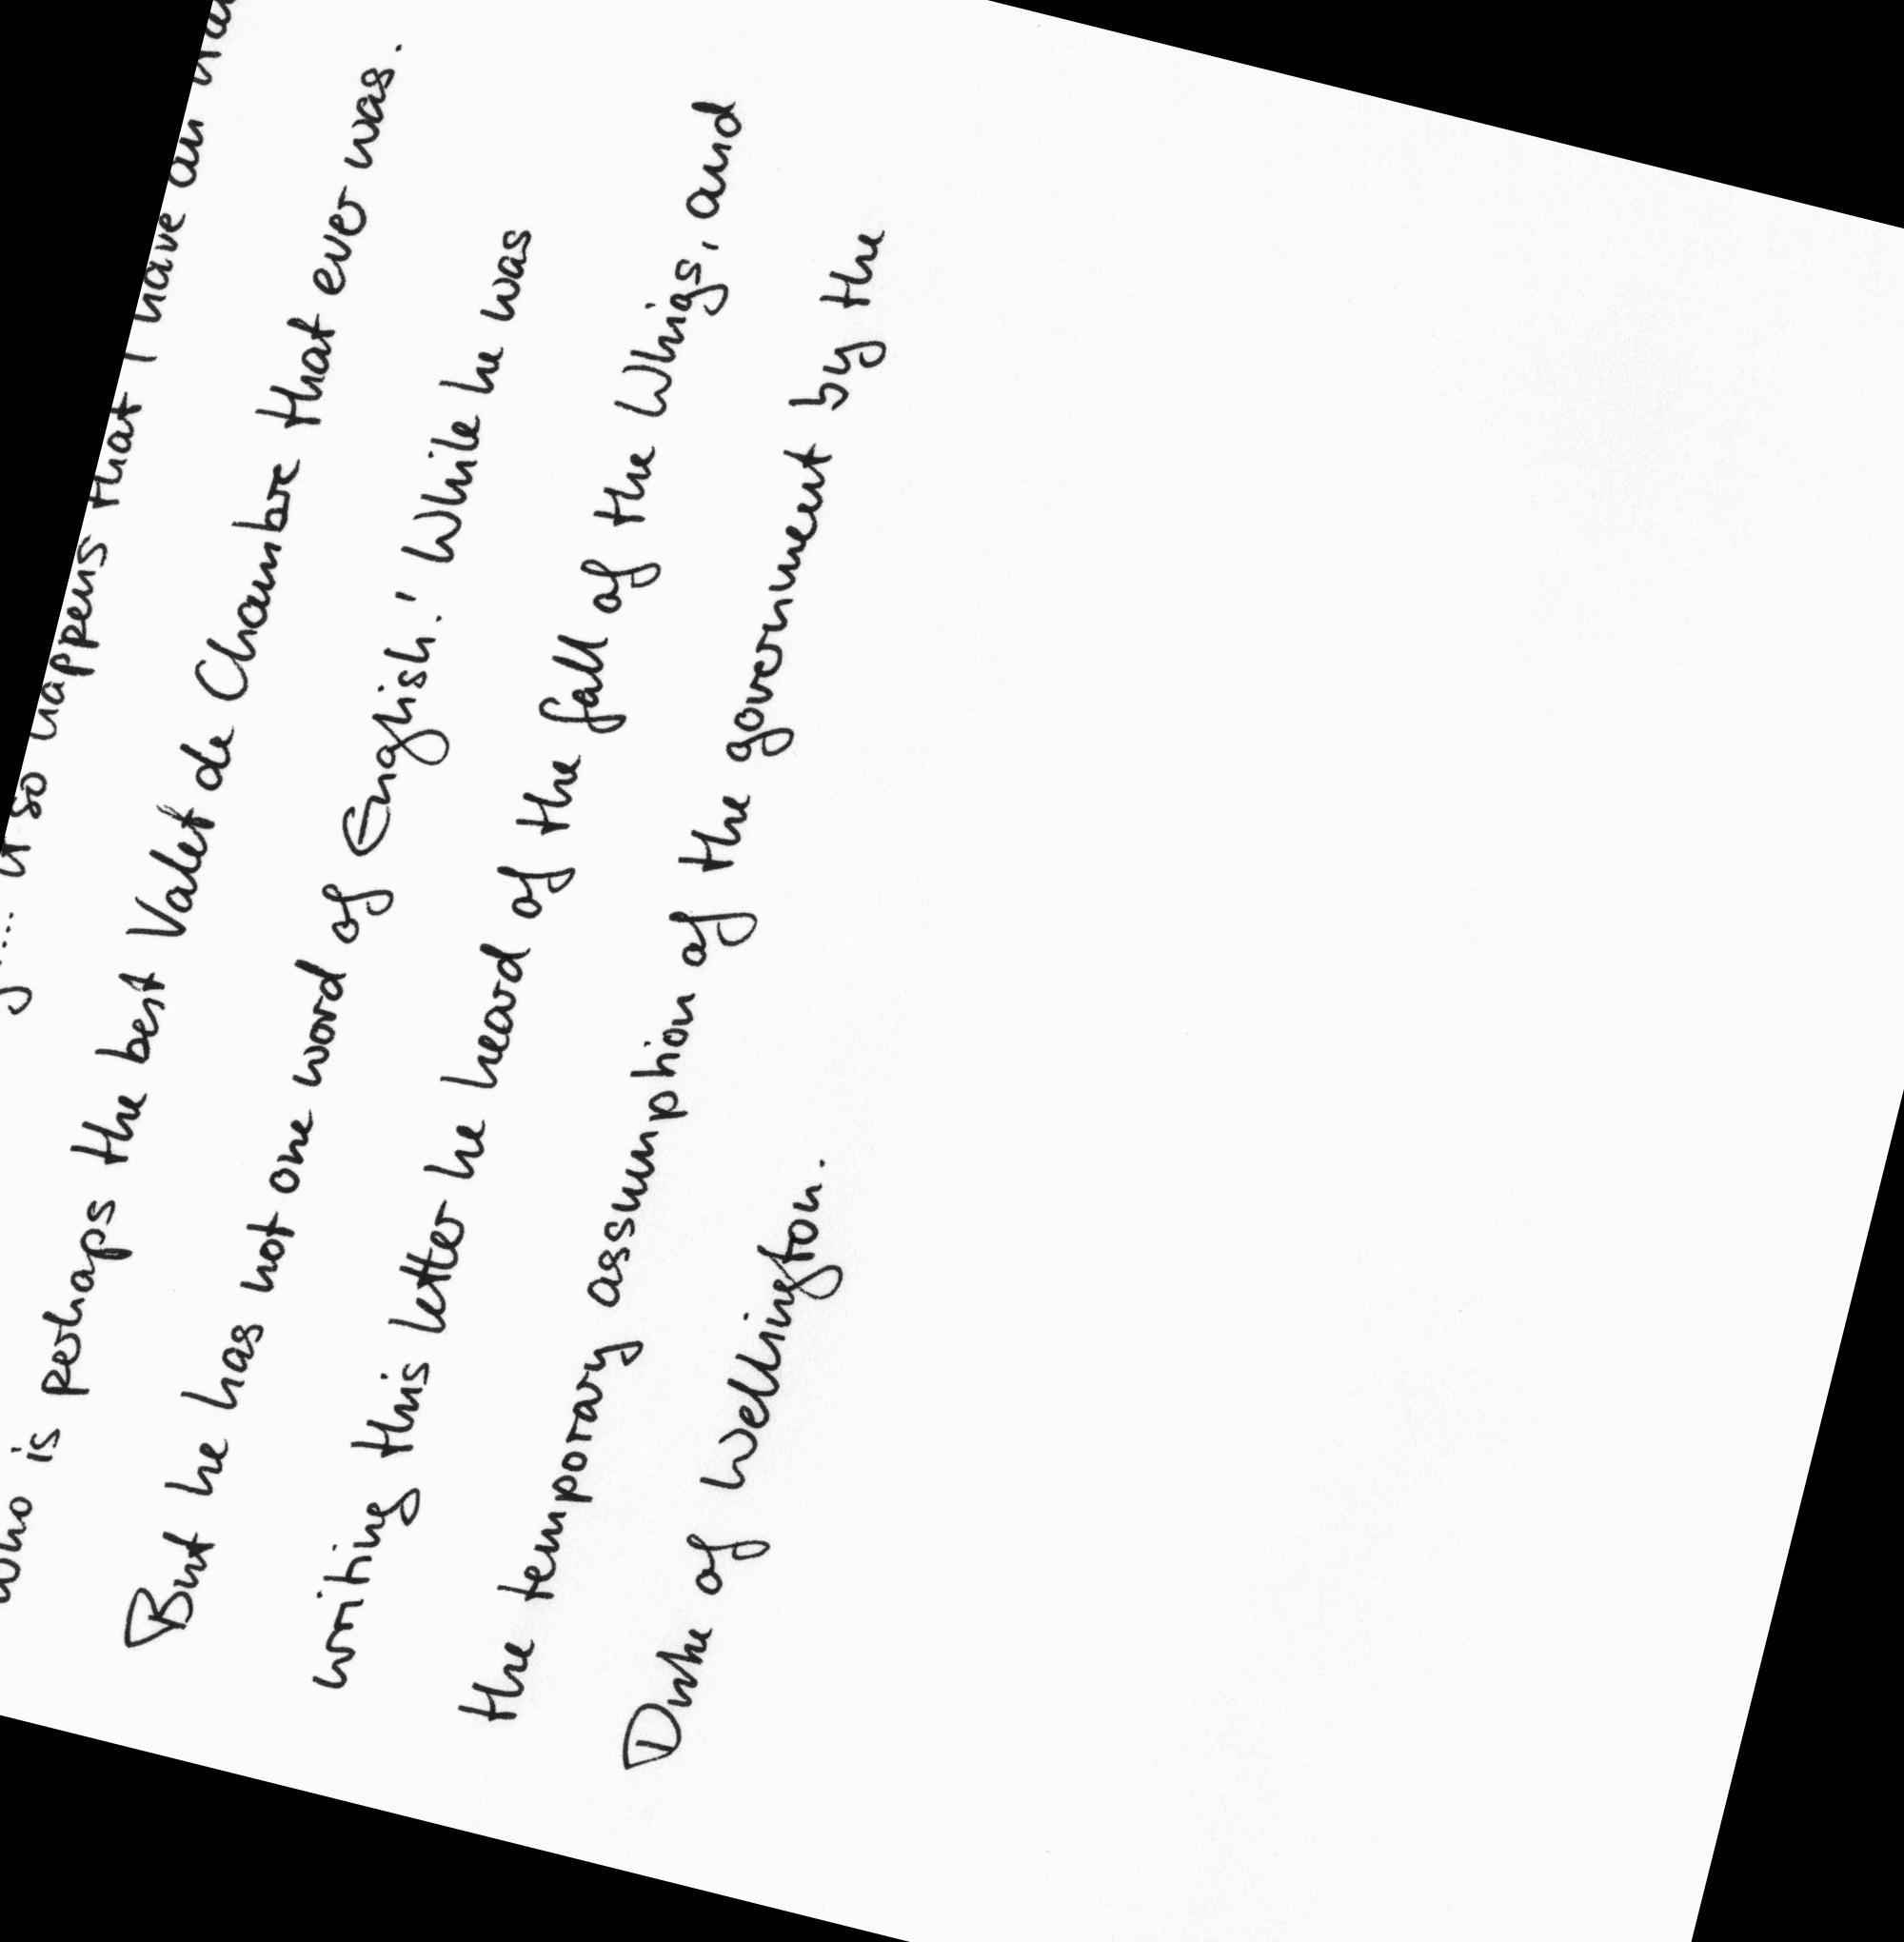 so happens that I have an
who is perhaps the best Valet de Chambre that ever was.
But he has not one word of English.' While he was
writing this letter he heard of the fall of the Whigs, and
the temporary assumption of the government by the
Duke of Wellington.